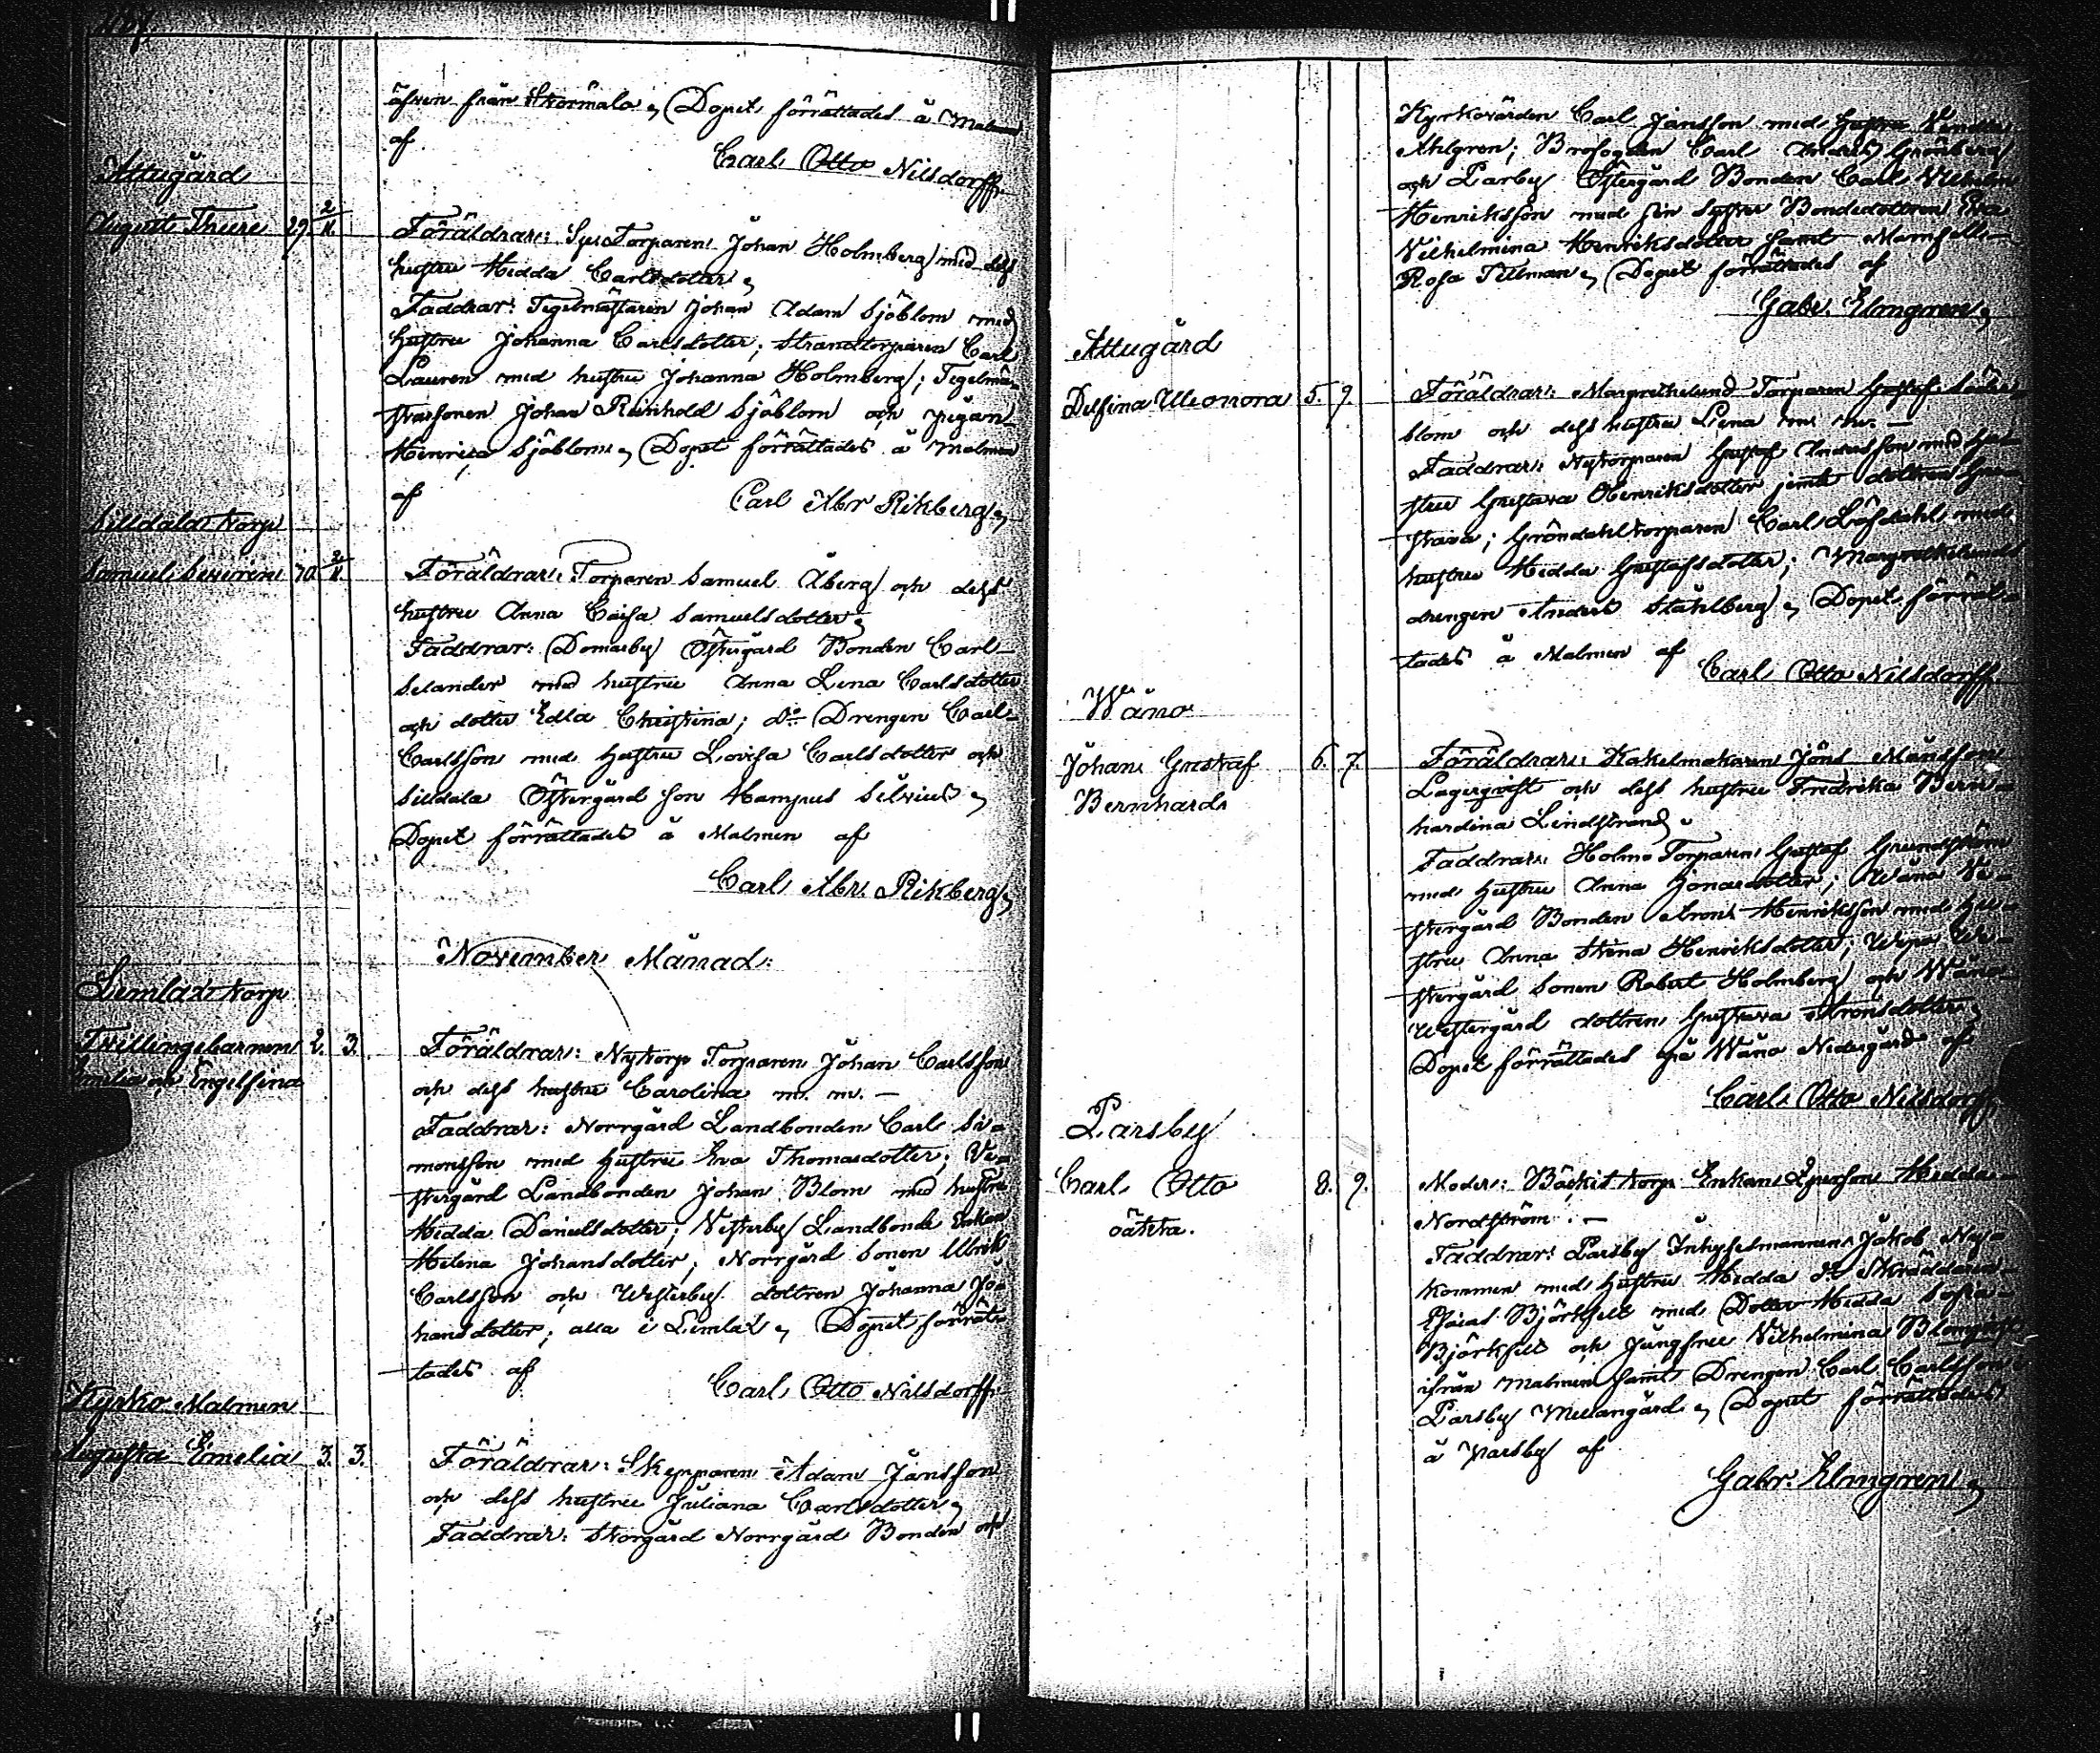 äfven från Stormåla, Dopet förrättades å Malmen
af
Carl Otto Nilsdorff.
Attugård
August Thure 29. 2/11.
Föräldrar: Torparen Johan Holmberg med dess
hustru Hedda Carlsdotter,
Faddrar: Tegelmästaren Johan Adam Sjöblom med
hustru Johanna Carlsdotter; Strandtorparen Carl
Lauren med hustru Johanna Holmberg; Tegelmä-
starsonen Johan Reinhold Sjöblom och pigan
Henrica Sjöblom, Dopet förrättades å Malmen
af
Carl Abr Rikberg,
Silldala torp
Samuel Severin 30. 2/11.
Föräldrar: Torparen Samuel Åberg och dess
hustru Anna Caisa Samuelsdotter,
Faddrar: Domarby Östergård Bonden Carl
Selander med hustru Anna Lena Carlsdotter
och dotter Edla Christina; d:o Drengen Carl
Carlsson med hustru Lovisa Carlsdotter och
Silldala Östergård son Hampus Silvius,
Dopet förrättades å Malmen af
Carl Abr. Rikberg,
November Månad:
Lemlax torp
Twillingebarnen 2. 3.
Emelia och Engelfina
Föräldrar: Nytorp Torparen Johan Carlsson
och dess hustru Carolina m. m. —
Faddrar: Norrgård Landbonden Carl Si-
monsson med hustru Eva Thomasdotter; Ve-
stergård Landbonden Johan Blom med hustru
Hedda Danielsdotter; Vesterby Landbonde Enkan
Helena Johansdotter; Norrgård Sonen Ulrik
Carlsson och Westerby dottren Johanna Jo-
hansdotter; alla i Lemlax, Dopet förrät-
tades af
Carl Otto Nilsdorff.
Kyrko Malmen
Augusta Emelia 3. 3.
Föräldrar: Skepparen Adam Jansson
och dess hustru Juliana Carlsdotter,
Faddrar: Storgård Norrgård Bonden och
Kyrkovärden Carl Jansson med hustru
Ahlgren; Brofogden Carl Anders Grönberg
och Larby Östergård Bonden Carl Vilhelm
Henriksson med sin syster Bondedottren Eva
Vilhelmina Henriksdotter samt Mamsell
Rosa Tillman, Dopet förrättades af
Gabr. Elmgren,
Attugård
Delfina Uleonora 5. 7.
Föräldrar: Margrethelund Torparen Gustaf Söder-
blom och dess hustru Liena m. m. —
Faddrar: Nytorparen Gustaf Andersson med hu-
stru Gustava Henriksdotter jemte dottren Gu-
stava; Gröndahl torparen Carl Löfdahl med
hustru Hedda Gustafsdotter; Margrethelunds
drengen Anders Ståhlberg, Dopet förrät-
tades å Malmen af
Carl Otto Nilsdorff
Wäno
Johan Gustaf 6. 7.
Bernhard
Föräldrar: Kakelmakaren Jöns Månsson
Lagerqvist och dess hustru Fredrika Bern-
hardina Lindstrand.
Faddrar: Holmo Torparen Gustaf Grundström
med hustru Anna Jonasdotter; Wäno Ve-
stergård Bonden Aron Henriksson med hu-
stru Anna Stina Henriksdotter; We-
stergård Sonen Robert Holmberg och Wäno
Westergård dottren Gustava Aronsdotter,
Dopet förrättades på Wäno Nedergård af
Carl Otto Nilsdorff
Parsby
Carl Otto 8. 9.
oäkta.
Moder: Bäckis torp Enkan Hedda
Nordström. —
Faddrar: Parsby Inhysesmannen Jakob
kommen med hustru Hedda d:o Skräddaren
Esaias Björkfelt med Dotter Hedda Sofia
Björkfelt och Jungfru Vilhelmina Blomqvist
ifrån Malmen samt Drengen Carl Carlsson
Parsby Mellangård, Dopet förrättades
å Parsby af
Gabr. Elmgren,